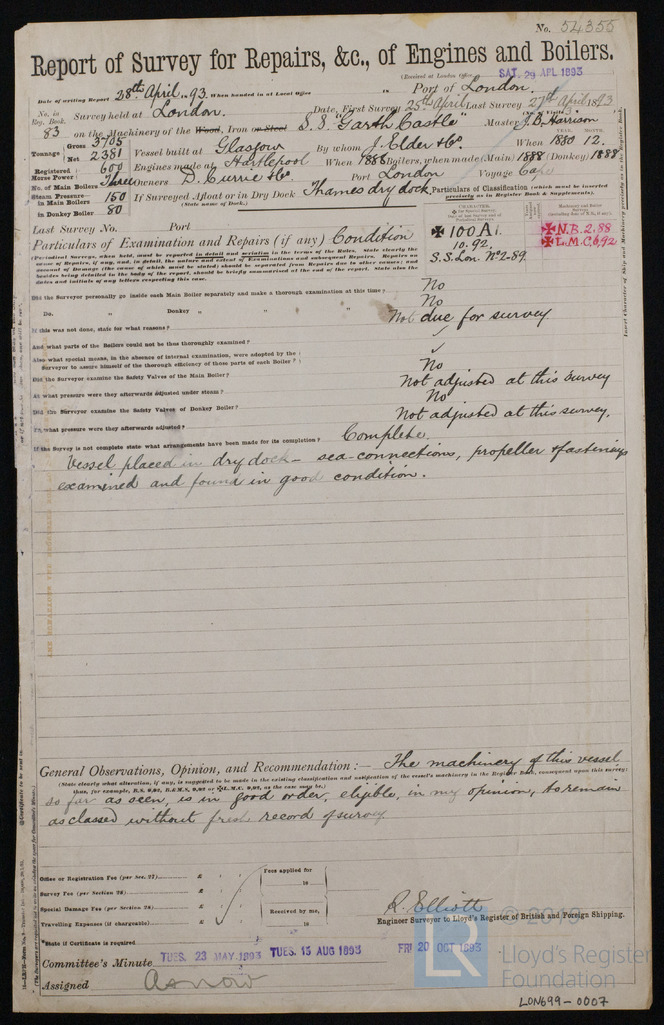 No. 54355
Report of Survey for Repairs, &c., of Engines and Boilers.
(Received at London Office SAT. 29 APL 1893
Date of writing Report 28th April 1893. When handed in at Local Office 18 Port of London.
No. in Reg. Book. 83 Survey held at London. Date, First Survey 25th April Last Survey 27th April 1893
on the Machinery of the Wood, Iron or Steel S.S. "Garth Castle" Master J. B. Harrison
Tonnage Gross 3705 Net 2381 Vessel built at Glasgow By whom J. Elder & Co. When YEAR. 1880 MONTH. 12.
Registered Horse Power 600 Engines made at Hartlepool When 1888 Boilers, when made (Main) 1888 (Donkey) 1888
No. of Main Boilers Three Owners D. Currie & Co. Port London Voyage Cape
Steam Pressure in Main Boilers 160 in Donkey Boiler 80 If Surveyed Afloat or in Dry Dock Thames dry dock.
(State name of Dock.)
Particulars of Classification (which must be inserted precisely as in Register Book & Supplements).
Last Survey No. Port
CHARACTER. ✠ 100 A1. 10.92. S.S. Lon. No 2-89.
✠ N.B. 2.88
✠ L.M.C. 6,92
Particulars of Examination and Repairs (if any) Condition
Did the Surveyor personally go inside each Main Boiler separately and make a thorough examination at this time? No
Do. „ Donkey „ „ „ No
If this was not done, state for what reasons? Not due for survey
And what parts of the Boilers could not be thus thoroughly examined?
Also what special means, in the absence of internal examination, were adopted by the Surveyor to assure himself of the thorough efficiency of those parts of each Boiler? ✓
Did the Surveyor examine the Safety Valves of the Main Boiler? No
At what pressure were they afterwards adjusted under steam? Not adjusted at this survey
Did the Surveyor examine the Safety Valves of Donkey Boiler? No
At what pressure were they afterwards adjusted? Not adjusted at this survey.
If the Survey is not complete state what arrangements have been made for its completion? Complete.
Vessel placed in dry dock - sea-connections, propeller & fastenings
examined and found in good condition.
General Observations, Opinion, and Recommendation:— The machinery of this vessel
so far as seen, is in good order, eligible, in my opinion, to remain
as classed without fresh record of survey
Office or Registration Fee (per Sec. 27) £
Survey Fee (per Section 28) £
Special Damage Fee (per Section 28) £
Travelling Expenses (if chargeable) £
Fees applied for
18
Received by me,
18
R. Elliott
Engineer Surveyor to Lloyd's Register of British and Foreign Shipping.
*State if Certificate is required
Committee's Minute TUES. 23 MAY 1893 TUES. 15 AUG 1893 FRI 20 OCT 1893
Assigned As now
© 2019
LR
Lloyd's Register
Foundation
LON699-0007